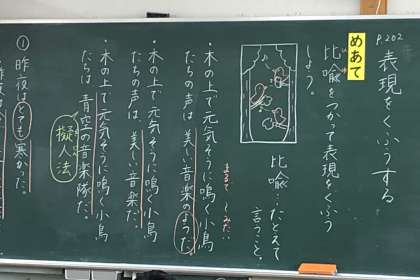 p.202
表現をくふうする
めあて
比喩をつかって表現をくふう
しよう。
ひゆ
比喩…たとえて
言うこと。
まるで～みたい
・木の上で元気そうに鳴く小鳥
たちの声は美しい音楽のようだ。
・木の上で元気そうに鳴く小鳥
たちの声は美しい音楽だ。
・木の上で元気そうに鳴く小鳥
たちは青空の音楽隊だ。
擬人法
①昨夜はとても寒かった。